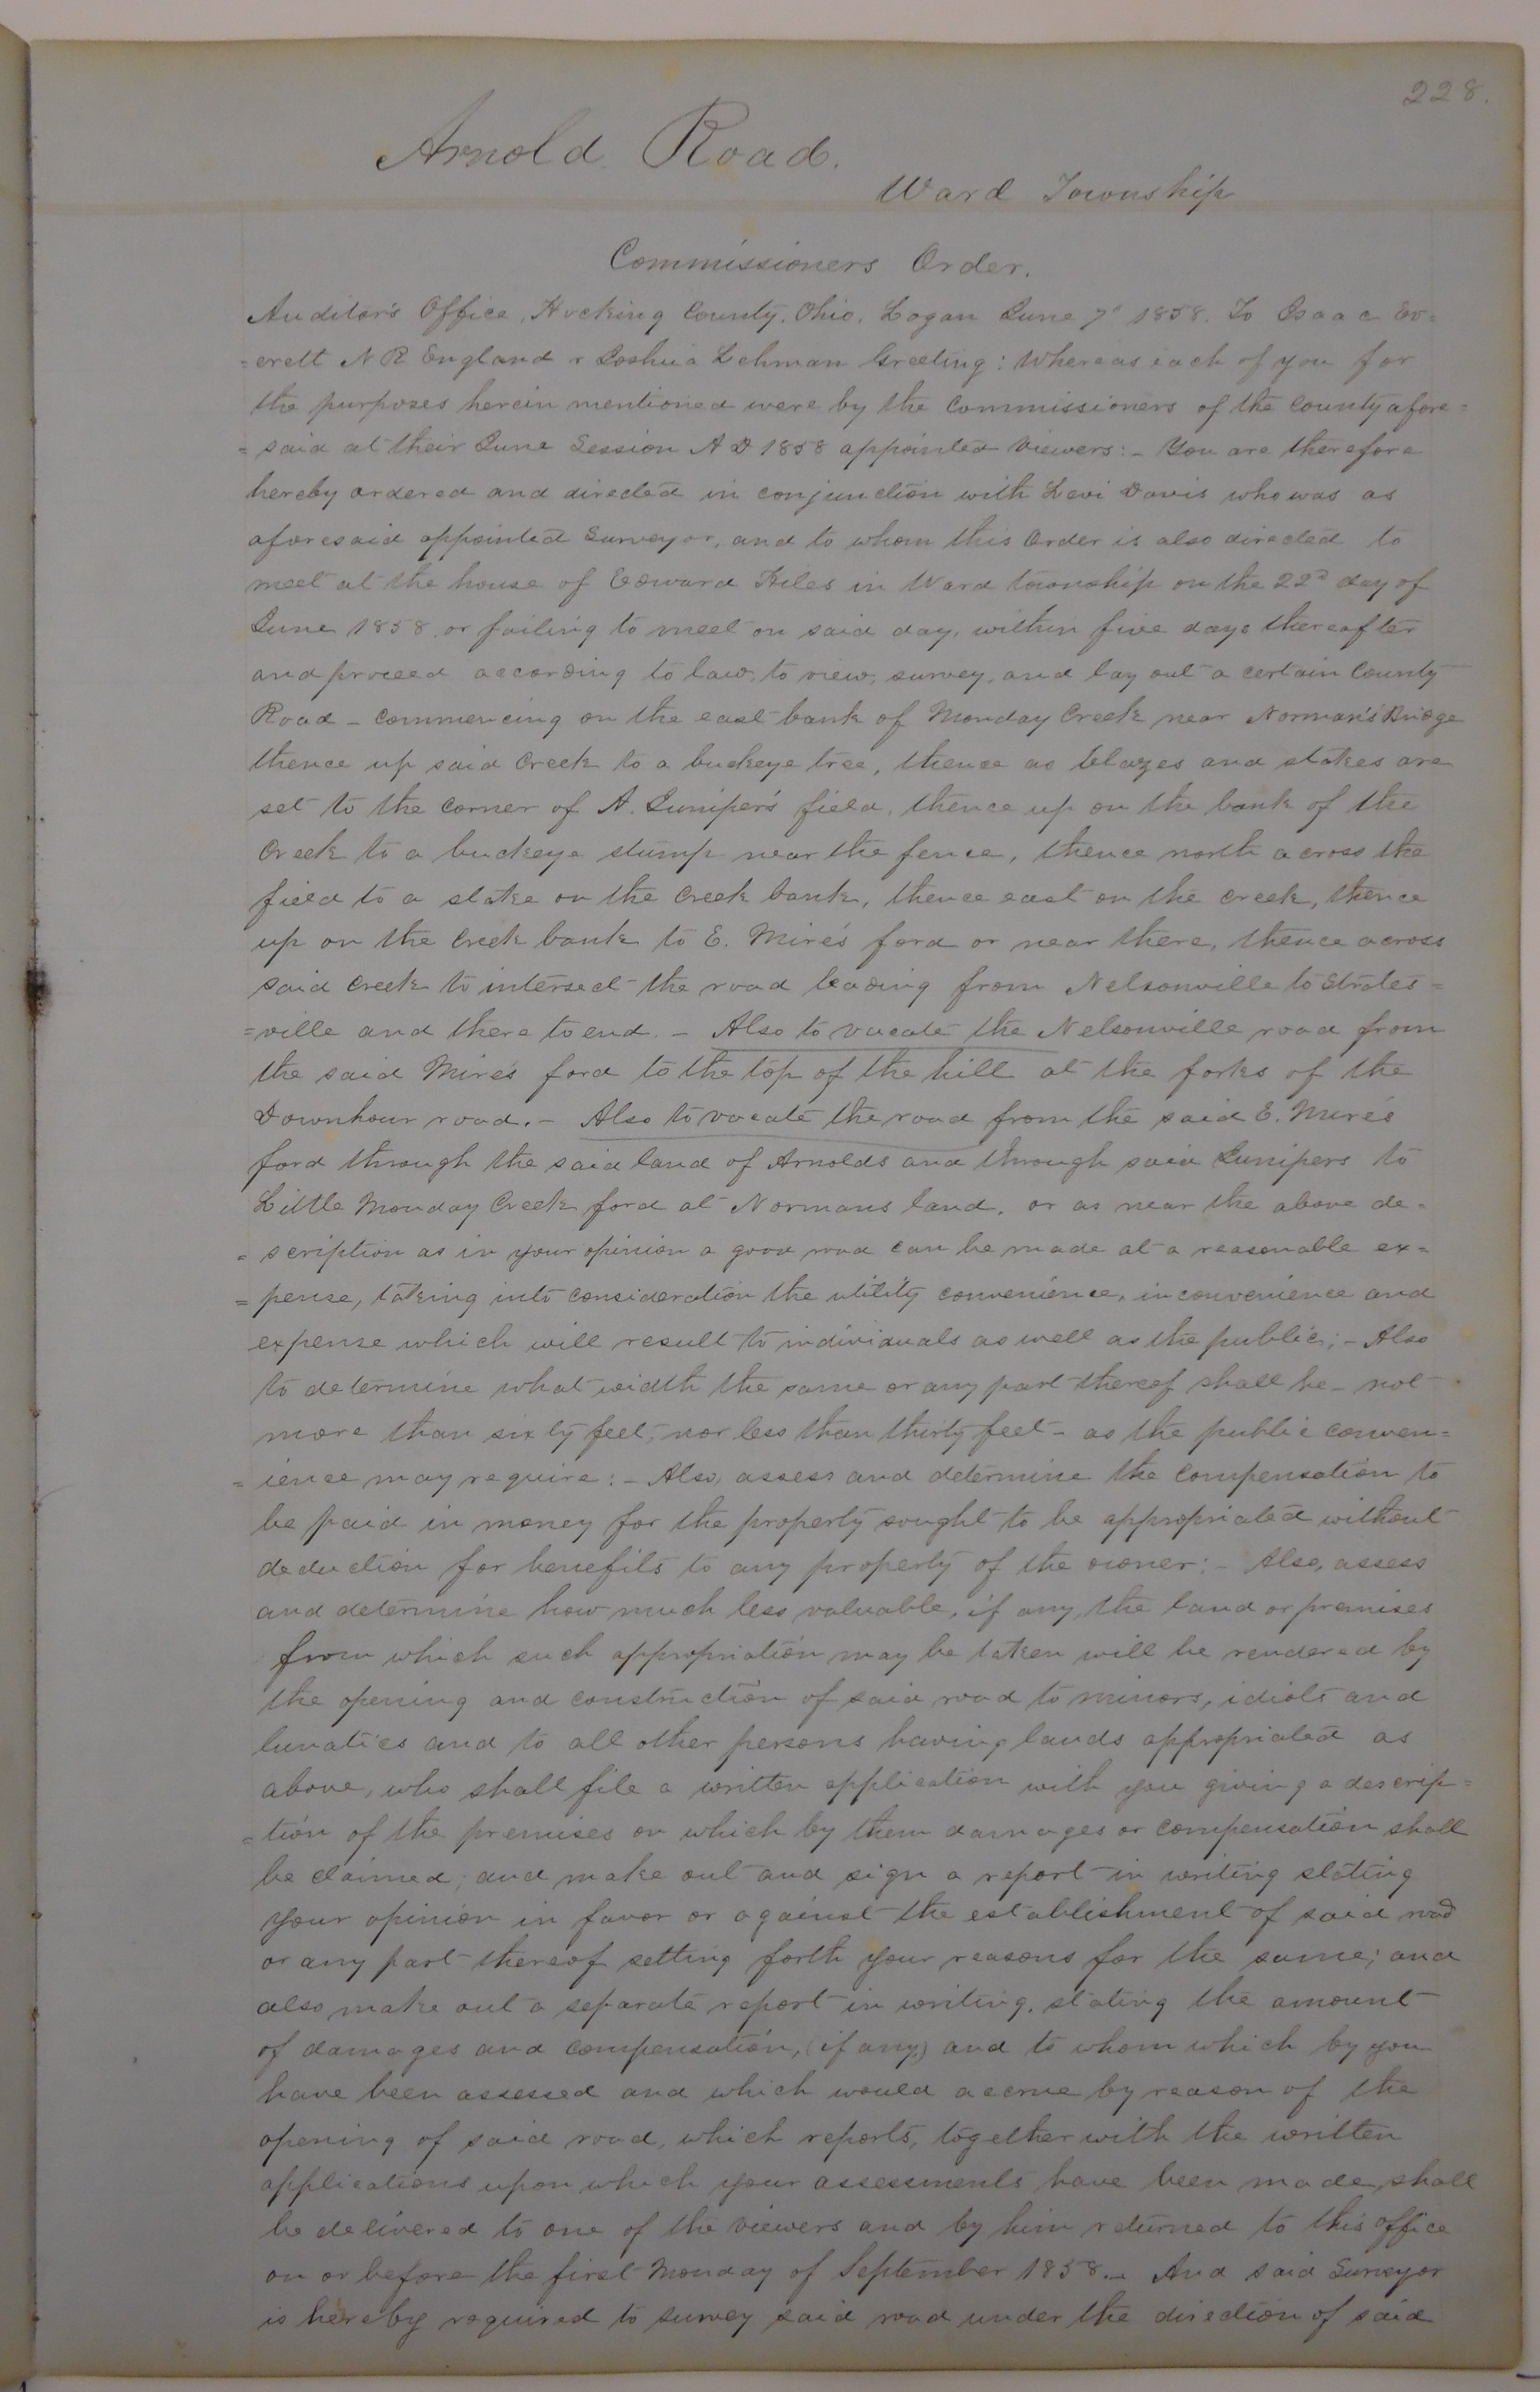 228.
Arnold Road.
Ward Township
Commissioners Order.
Auditor's Office, Hocking County, Ohio, Logan June 7" 1858. To Isaac Ev=
=erett N R England & Joshua Lehman Greeting: Whereas each of you for
the purposes herein mentioned were by the Commissioners of the County afore=
= said at their June Session A D 1858 appointed Viewers:- You are therefore
hereby ordered and directed in conjunction with Levi Davis who was as
aforesaid appointed Surveyor, and to whom this Order is also directed to
meet at the house of Edward Hiles in Ward township on the 22d day of
June 1858 or failing to meet on said day, within five days thereafter
and proceed according to law, to view, survey, and lay out a certain County
Road - commencing on the east bank of Monday Creek near Norman's Bridge
thence up said Creek to a buckeye tree, thence as blazes and stakes are
set to the corner of A. Juniper's field, thence up on the bank of the
Creek to a buckeye stump near the fence, thence north across the
field to a stake on the Creek bank, thence east on the creek, thence
up on the Creek bank to E. Mire's ford or near there, thence across
said Creek to intersect the road leading from Nelsonville to Straits=
=ville and there to end. - Also to vacate the Nelsonville road from
the said Mire's ford to the top of the hill at the forks of the
Downhour road. - Also to vacate the road from the said E. Mire's
ford through the said land of Arnolds and through said Junipers to
Little Monday Creek ford at Normans land, or as near the above de=
= scription as in your opinion a good road can be made at a reasonable ex=
= pense, taking into consideration the utility convenience, inconvenience and
expense which will result to individuals as well as the public; - Also
to determine what width the same or any part thereof shall be - not
more than sixty feet, nor less than thirty feet - as the public conven=
= ience may require: - Also, assess and determine the compensation to
be paid in money for the property sought to be appropriated without
deduction for benefits to any property of the owner: - Also, assess
and determine how much less valuable, if any, the land or premises
from which such appropriation may be taken will be rendered by
the opening and construction of said road to minors, idiots and
lunatics and to all other persons having lands appropriated as
above, who shall file a written application with you giving a descrip=
= tion of the premises on which by them damages or compensation shall
be claimed; and make out and sign a report in writing stating
your opinion in favor or against the establishment of said road
or any part thereof setting forth your reasons for the same; and
also make out a separate report in writing, stating the amount
of damages and compensation, (if any) and to whom which by you
have been assessed and which would accrue by reason of the
opening of said road, which reports, together with the written
applications upon which your assessments have been made, shall
be delivered to one of the viewers and by him returned to this office
on or before the first Monday of September 1858. - And said Surveyor
is hereby required to survey said road under the direction of said